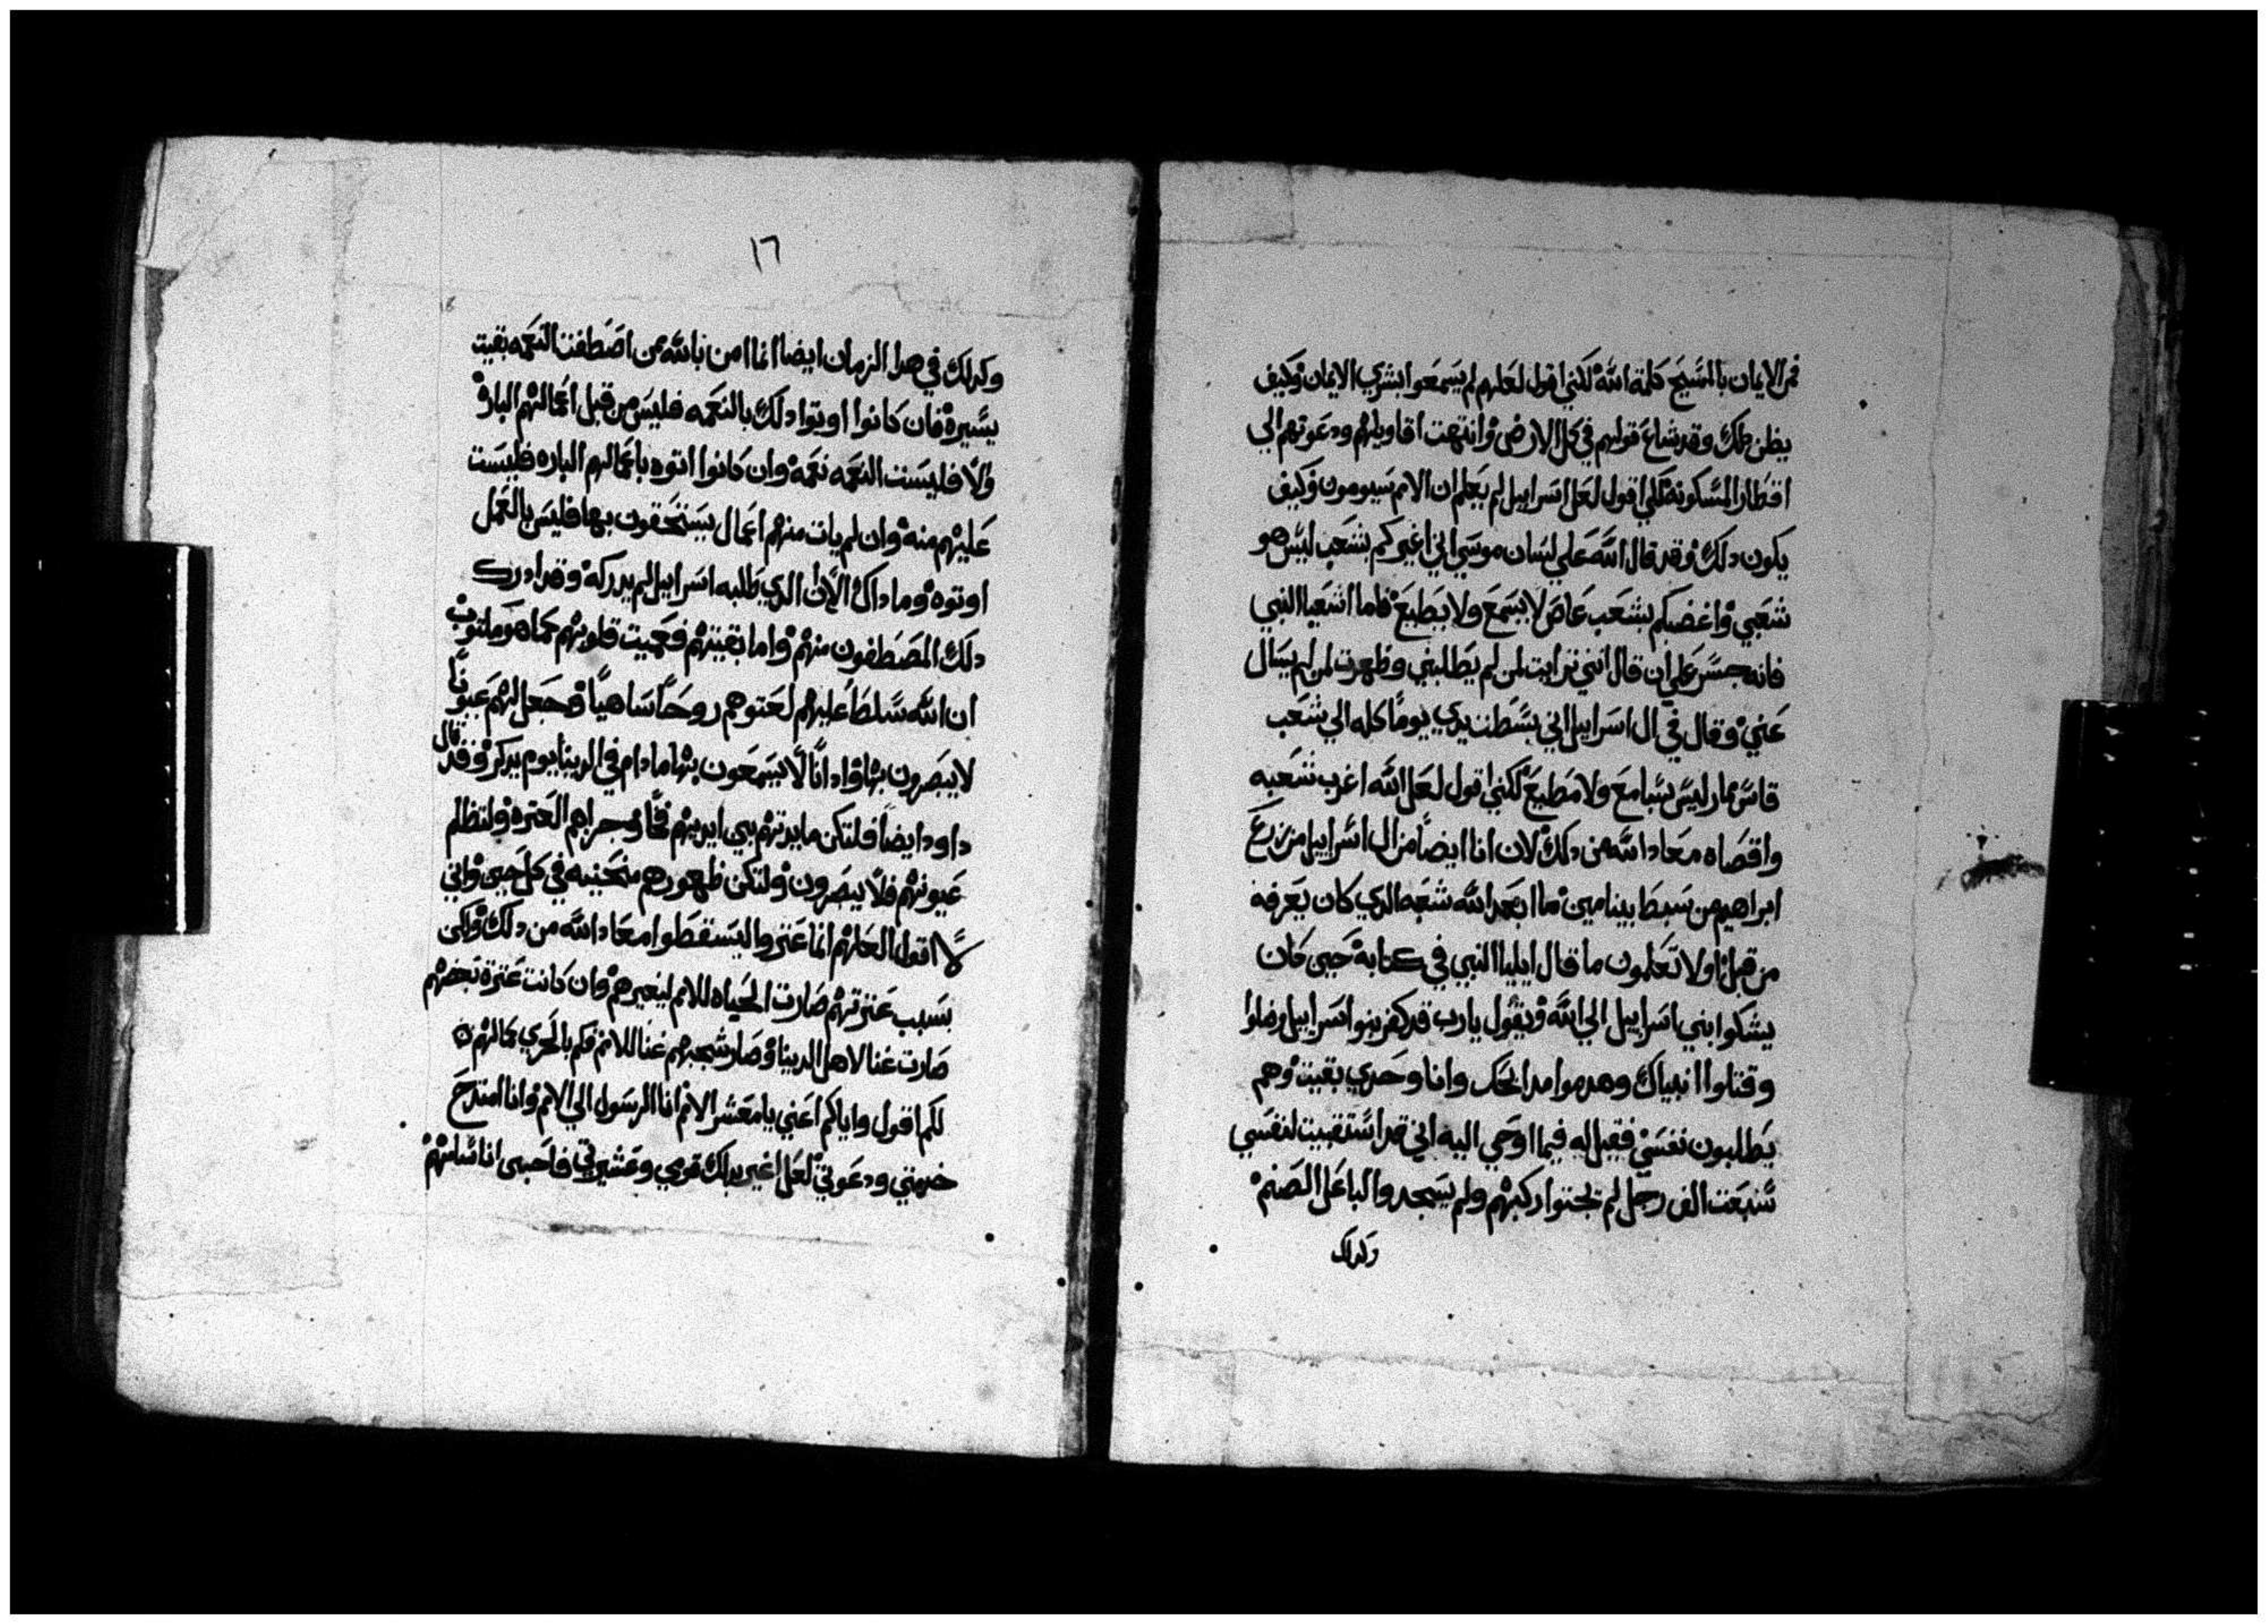 فمن الايمان بالمسيح كلمة الله لكني اقول لعلهم لم يسمعوا بشري الايمان وكيف
يظن ذلك وقد شاع قولهم في كل الارض وانتهت اقاويلهم ودعوتهم الي
اقطار المسكونة لكني اقول لعل اسراييل لم يعلم ان الامم سيومنون وكيف
يكون دلك وقد قال الله علي لسان موسي اني اغيركم بشعب ليس هو
شعبي واغضبكم بشعب عاص لا يسمع ولا يطيع فاما اشعيا النبي
فانه جسر علي ان قال انني ترايت لمن لم يطلبني وظهرت لمن لم يسال
عني وقال في ال اسراييل اني بسطت يدي يوما كله الي شعب
قاس مار ليس بسامع ولا مطيع لكني اقول لعل الله اغرب شعبه
واقصاه معاد الله من دلك لان انا ايضا من ال اسراييل من زرع
ابراهيم من سبط بينامين ما ابعد الله شعبه الدي كان يعرفه
من قبل اولا تعلمون ما قال ايليا النبي في كتابه حين كان
يشكوا بني اسراييل الي الله ويقول يارب قد كفر بنوا اسراييل وضلوا
وقتلوا انبياك وهدموا مدابحك وانا وحدي بقيت وهم
يطلبون نفسي فقيل له فيما اوحي اليه اني قد استبقيت لنفسي
سبعت الف رجل لم يجتوا ركبهم ولم يسجدوا لباعل الصنم
وكدلك
١٦
وكدلك في هدا الزمان ايضا انما امن بالله من اصطفت النعمه بقيت
يسيرة فان كانوا اوتوا دلك بالنعمه فليس من قبل اعمالهم الباره
ولا فليست النعمه نعمة وان كانوا اتوه باعمالهم الباره فليست
عليهم منه وان لم يات منهم اعمال يستحقون بها فليس بالعمل
اوتوه وما داك الان الدي طلبه اسراييل لم يدركه وقد ادرك
دلك المصطفون منهم واما بقيتهم فعميت قلوبهم كما هو مكتوب
ان الله سلط عليهم لعتوهم روحا ساهيا وجعل لهم عيونا
لا يبصرون بها وادانا لا يسمعون بها ما دام في الدنيا يوم يدكر وقد قال
داود ايضا فلتكن مايدتهم بين ايديهم فخا وجزاهم العترة ولتظلم
عيونهم فلا يبصرون ولتكن ظهورهم منحنيه في كل حين واني
لا اقول لعلهم انما عتروا ليسقطوا معاد الله من دلك ولكن
بسبب عترتهم صارت الحياه للامم ليغيرهم وان كانت عترة بعضهم
صارت غنا لاهل الدينا وصار شجبهم غنا للامم فكم بالحري كمالهم
لكم اقول واياكم اعني يا معشر الامم انا الرسول الي الامم وانا امتدح
خدمتي ودعوتي لعل اغير بدلك قومي وعشيرتي فاحيي اناسا منهم